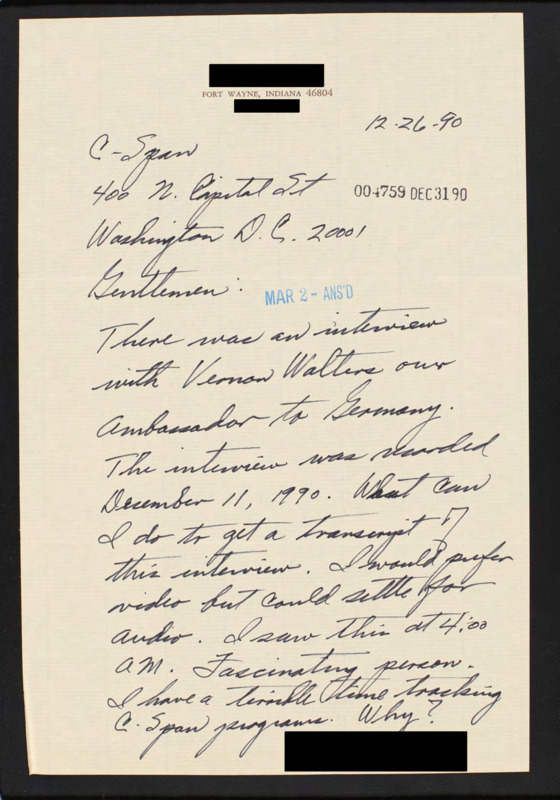 FORT WAYNE, INDIANA 46804
12-26-90
C-Span
400 N. Capital St
004759 DEC 31 90
Washington D.C. 20001
Gentlemen:
MAR 2 - ANS'D
There was an interview
with Vernon Walters our
Ambassador to Germany.
The interview was recorded
December 11, 1990. What can
I do to get a transcript of
this interview. I would prefer
video but could settle for
audio. I saw this at 4:00
AM. Fascinating person.
I have a terrible time tracking
C-Span programs. Why?